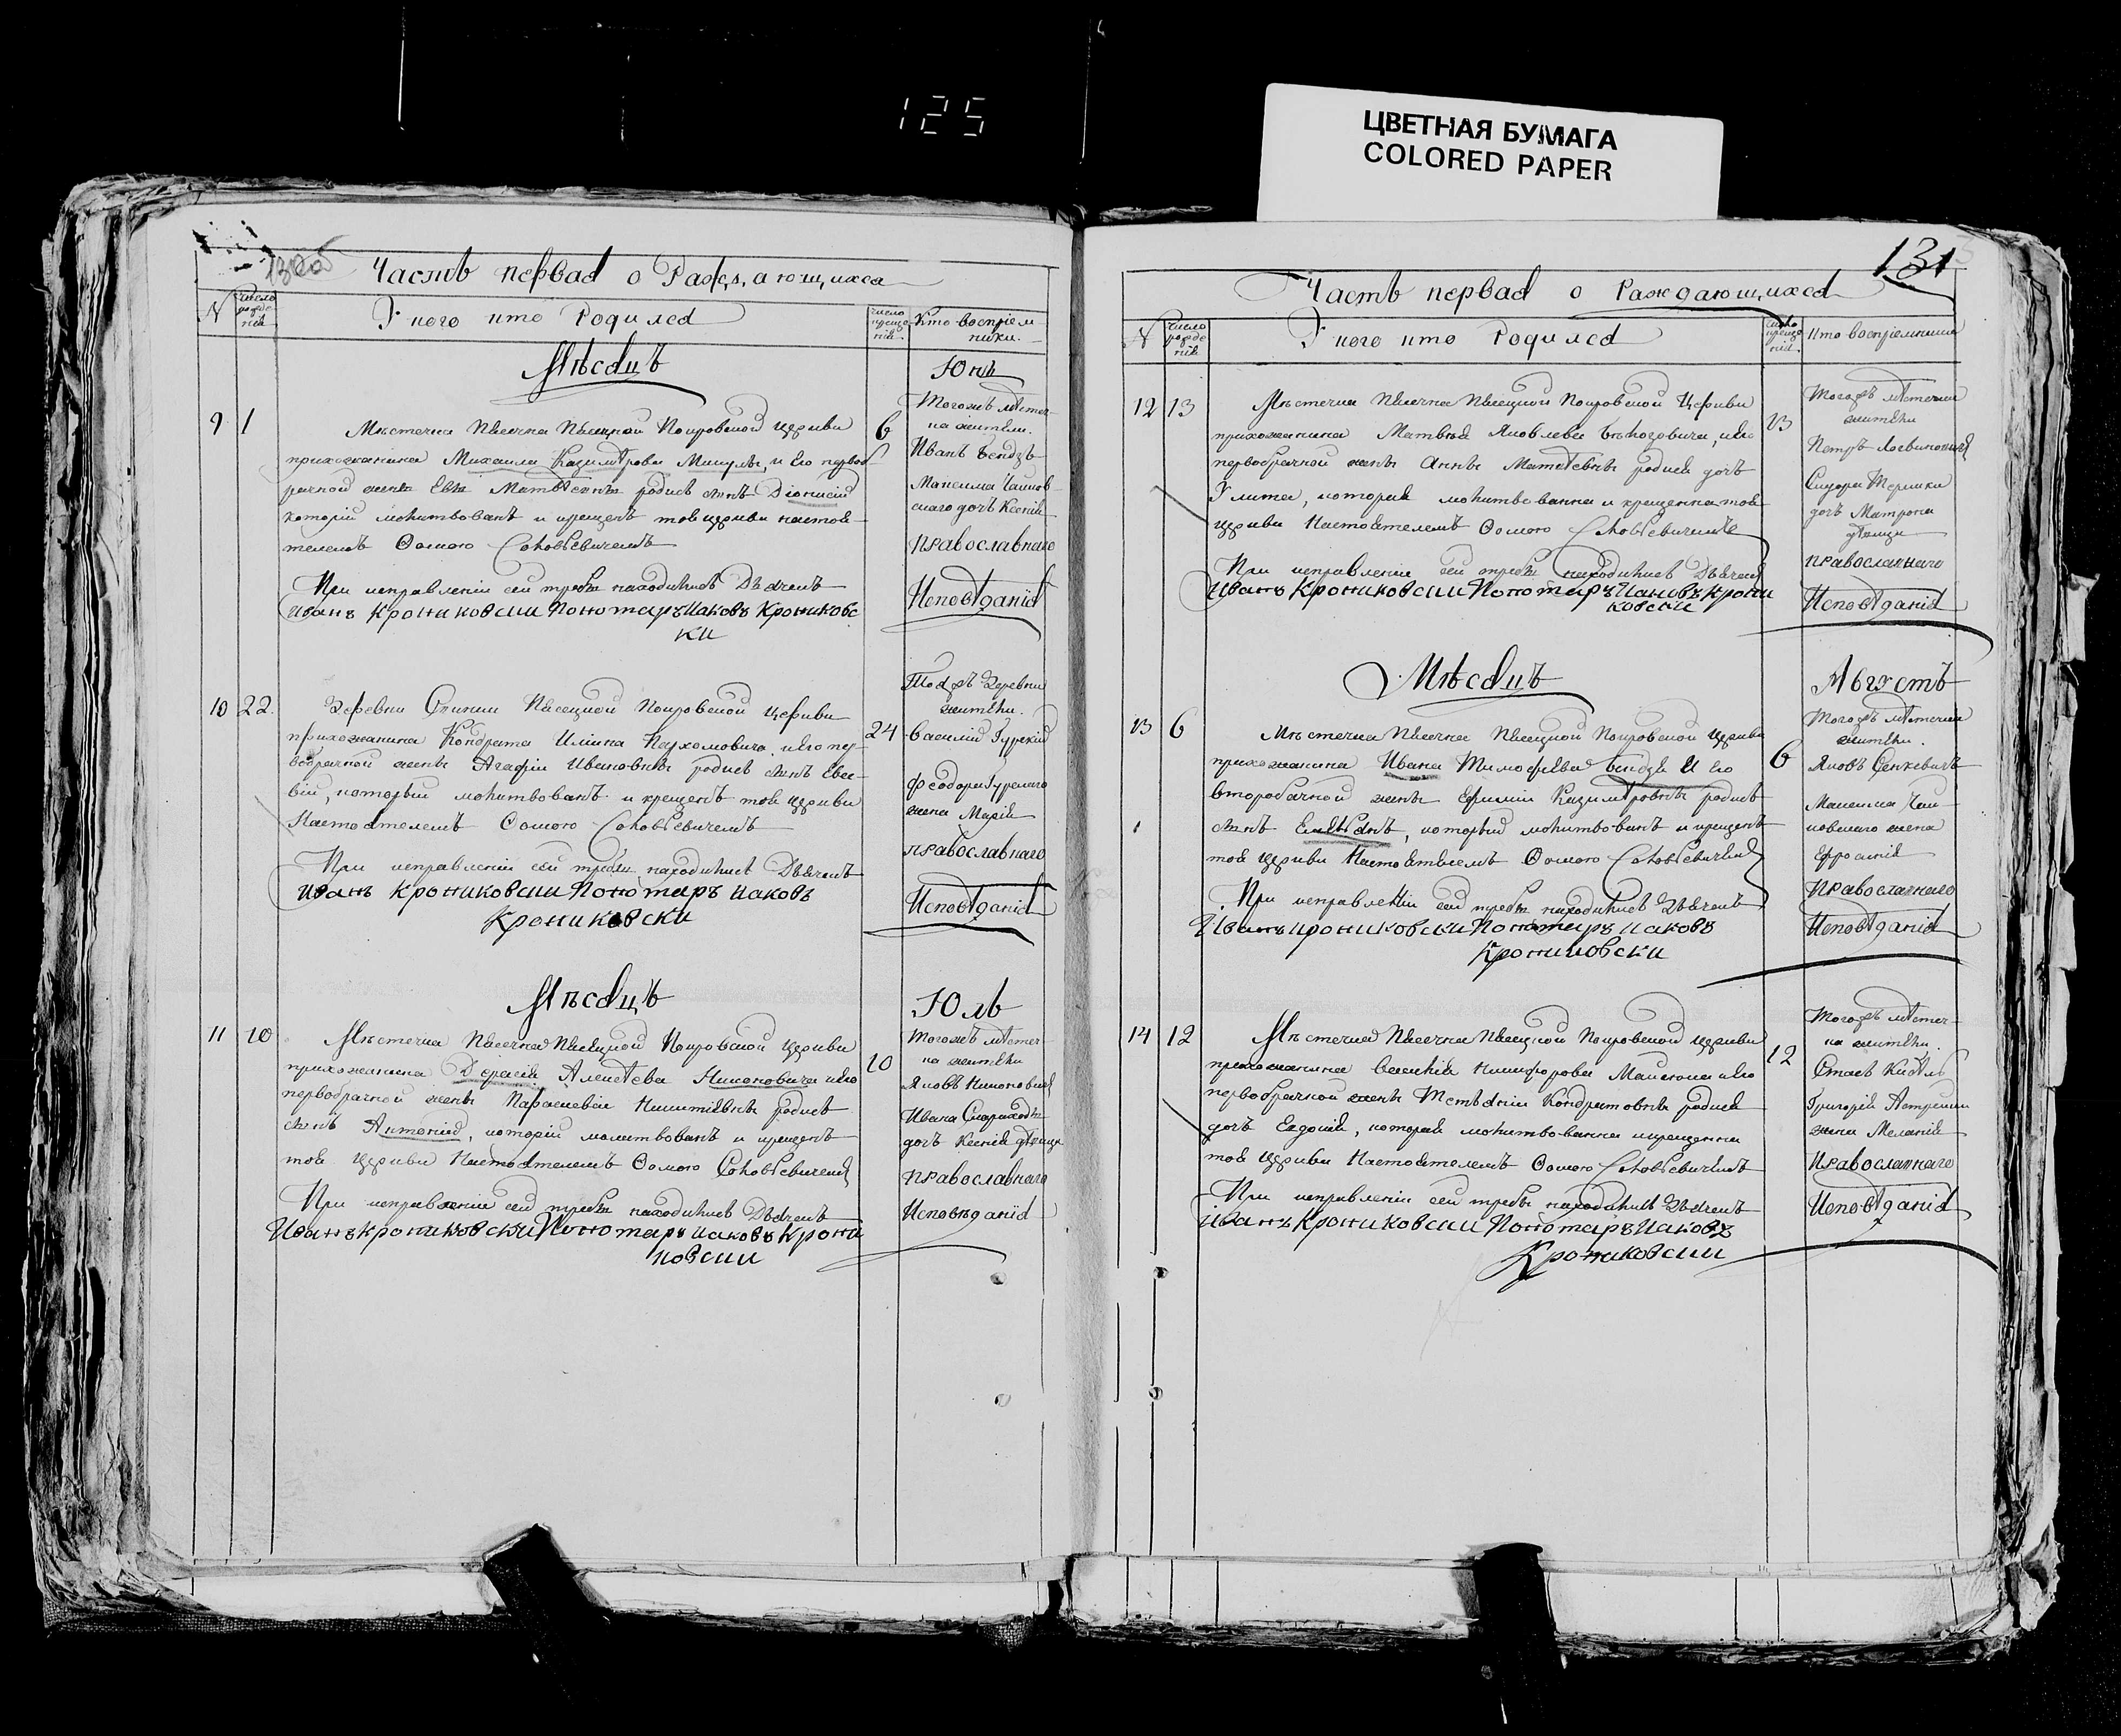 125
ЦВЕТНАЯ БУМАГА
COLORED PAPER
130об
Часть первая о Раждающихся
N
Число рожде-
нія
У кого кто Родился
число
креще-
нія
Кто воспріем-
ники.
Мѣсяцъ
Юнь
9 1
Мѣстечка Пясечна Пясецкой Покровской церкви
прихожанина Михаила Казимѣрова Микулы, и Его перво-
рачной жены Евы Матвѣевны родися сынъ Діонисій
который молитвованъ и крещенъ тоя церкви настоя-
телемъ Ѳомою Соловьевичемъ
При исправленіи сей требы находился Дьячекъ
Иванъ Крониковски Пономарь Иаковъ Крониковс
ки
6
Тогожъ мѣстеч-
ка жители.
Иванъ Бендзъ
Максима
дочь Ксенія
Православнаго
Исповѣданія
10 22.
Деревни Пясецкой Покровской церкви
прихожанина Кондрата Ильина Пархомовича и Его пер-
вобрачной жены Агафіи Ивановны родися сынъ Евсе-
вій, который молитвованъ и крещенъ тоя церкви
Настоятелемъ Ѳомою Соловьевичемъ
При исправленіи сей требы находился Дьячекъ
Иванъ Крониковски Пономарь Иаковъ
Крониковски
24
Тояжъ Деревни
жители.
Василій Гурскій
Феодора Гурскаго
жена Марія
православнаго
Исповѣданія
Мѣсяцъ
Юль
11 10
Мѣстечка Пясечна Пясецкой Покровской церкви
прихожанина Алексѣева Никоновича и Его
первобрачной жены Параскевіи Никитишны родися
сынъ Антоній, которій молитвованъ и крещенъ
тоя церкви Настоятелемъ Ѳомою Соловьевичемъ
При исправленіи сей требы находился Дьячекъ
Иванъ Крониковски Пономарь Иаковъ Крони
ковски
10
Тогожъ мѣстеч-
ка жители
Яковъ Никоновичъ
Ивана
дочь Ксенія дѣвица
православнаго
Исповѣданія
131
Часть первая о Раждающихся
N
Число
рожде-
нія
У кого кто Родился
Число
креще-
нія.
Кто воспріемники
12 13
Мѣстечка Пясечна Пясецкой Покровской Церкви
прихожанина Матвѣя Яковлева и Его
первобрачной жены Анны Матвѣевны родися дочь
Улита, которая молитвованна и крещенна тоя
церкви Настоятелемъ Ѳомою Соловьевичемъ
При исправленіи сей требы находился Дьячекъ
Иванъ Крониковски Пономарь Иаковъ Крони
ковски
13
Тогожъ мѣстечка
жители
Петръ Логвиновичъ
Сидора
дочь Матрона
дѣвица
православнаго
Исповѣданія
Мѣсяцъ
Августъ
13 6
Мѣстечка Пясечна Пясецкой Покровской церкви
прихожанина Ивана Тимофѣева Бендзи И Его
второбрачной жены Ефиміи Казимѣровны родися
сынъ Емельянъ, который молитвованъ и крещенъ
тоя церкви Настоятелемъ Ѳомою Соловьевичемъ
При исправленіи сей требы находился Дьячекъ
Иванъ Крониковски Пономарь Иаковъ
Крониковски
6
Тогожъ мѣстечка
жители.
Яковъ Сенкевичъ
Максима
жена
Ефросинія
Православнаго
Исповѣданія
14 12
Мѣстечка Пясечна Пясецкой Покровской церкви
прихожанина Василія Никифорова и Его
первобрачной жены Кондратовны родися
дочь Евдокія, которая молитвованна и крещенна
тоя церкви Настоятелемъ Ѳомою Соловьевичемъ
При исправленіи сей требы находился Дьячекъ
Иванъ Крониковски Пономарь Иаковъ
Крониковски
12
Тогожъ мѣстеч-
ка жители.
Григорія
жена Меланія
Православнаго
Исповѣданія